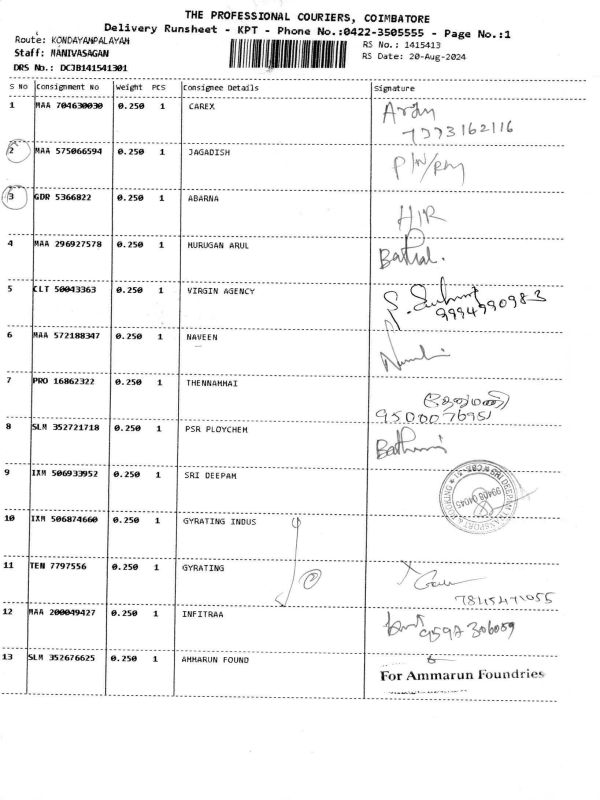 THE PROFESSIONAL COURIERS, COIMBATORE
Delivery Runsheet - KPT - Phone No.:0422-3505555 - Page No.:1
Route: KONDAYAMPALAYAM
RS No.: 1415413
Staff: MANIVASAGAN
RS Date: 20-Aug-2024
DRS No.: DCJB141541301
S No Consignment No Weight PCS Consignee Details Signature
1 MAA 704630030 0.250 1 CAREX
7373162116
2 MAA 575066594 0.250 1 JAGADISH
3 GDR 5366822 0.250 1 ABARNA
4 MAA 296927578 0.250 1 MURUGAN ARUL
5 CLT 50043363 0.250 1 VIRGIN AGENCY
9994990983
6 MAA 572188347 0.250 1 NAVEEN
7 PRO 16862322 0.250 1 THENNAMMAI
9500076951
8 SLM 352721718 0.250 1 PSR PLOYCHEM
9 IXM 506933952 0.250 1 SRI DEEPAM
10 IXM 506874660 0.250 1 GYRATING INDUS
11 TEN 7797556 0.250 1 GYRATING
7845471055
12 MAA 200049427 0.250 1 INFITRAA
9597306059
13 SLM 352676625 0.250 1 AMMARUN FOUND
For Ammarun Foundries